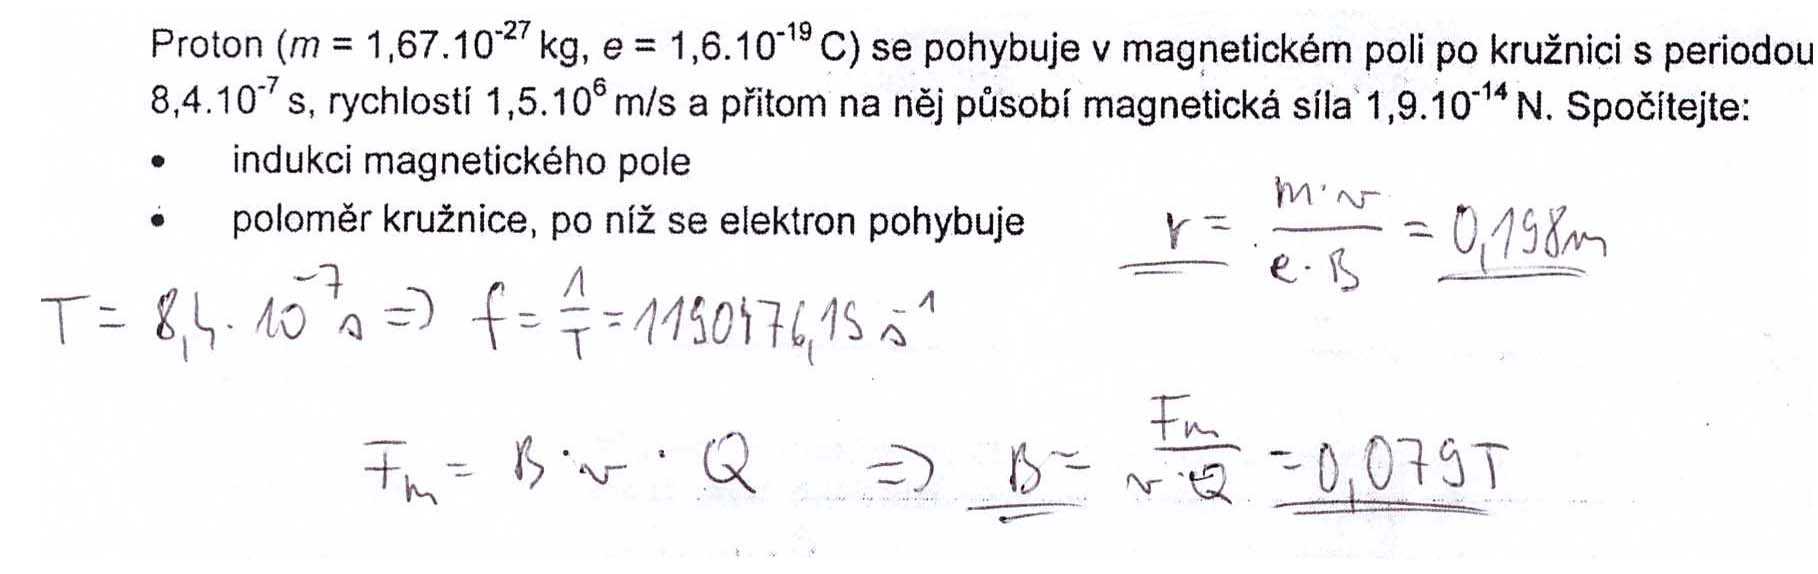 Proton (m = 1,67.10⁻²⁷ kg, e = 1,6.10⁻¹⁹ C) se pohybuje v magnetickém poli po kružnici s periodou
8,4.10⁻⁷ s, rychlostí 1,5.10⁶ m/s a přitom na něj působí magnetická síla 1,9.10⁻¹⁴ N. Spočítejte:
• indukci magnetického pole
• poloměr kružnice, po níž se elektron pohybuje
r = m·v / e·B = 0,198m
T = 8,4·10⁻⁷ s => f = 1/T = 1190476,19 s⁻¹
Fm = B·v·Q => B = Fm / v·Q = 0,079T